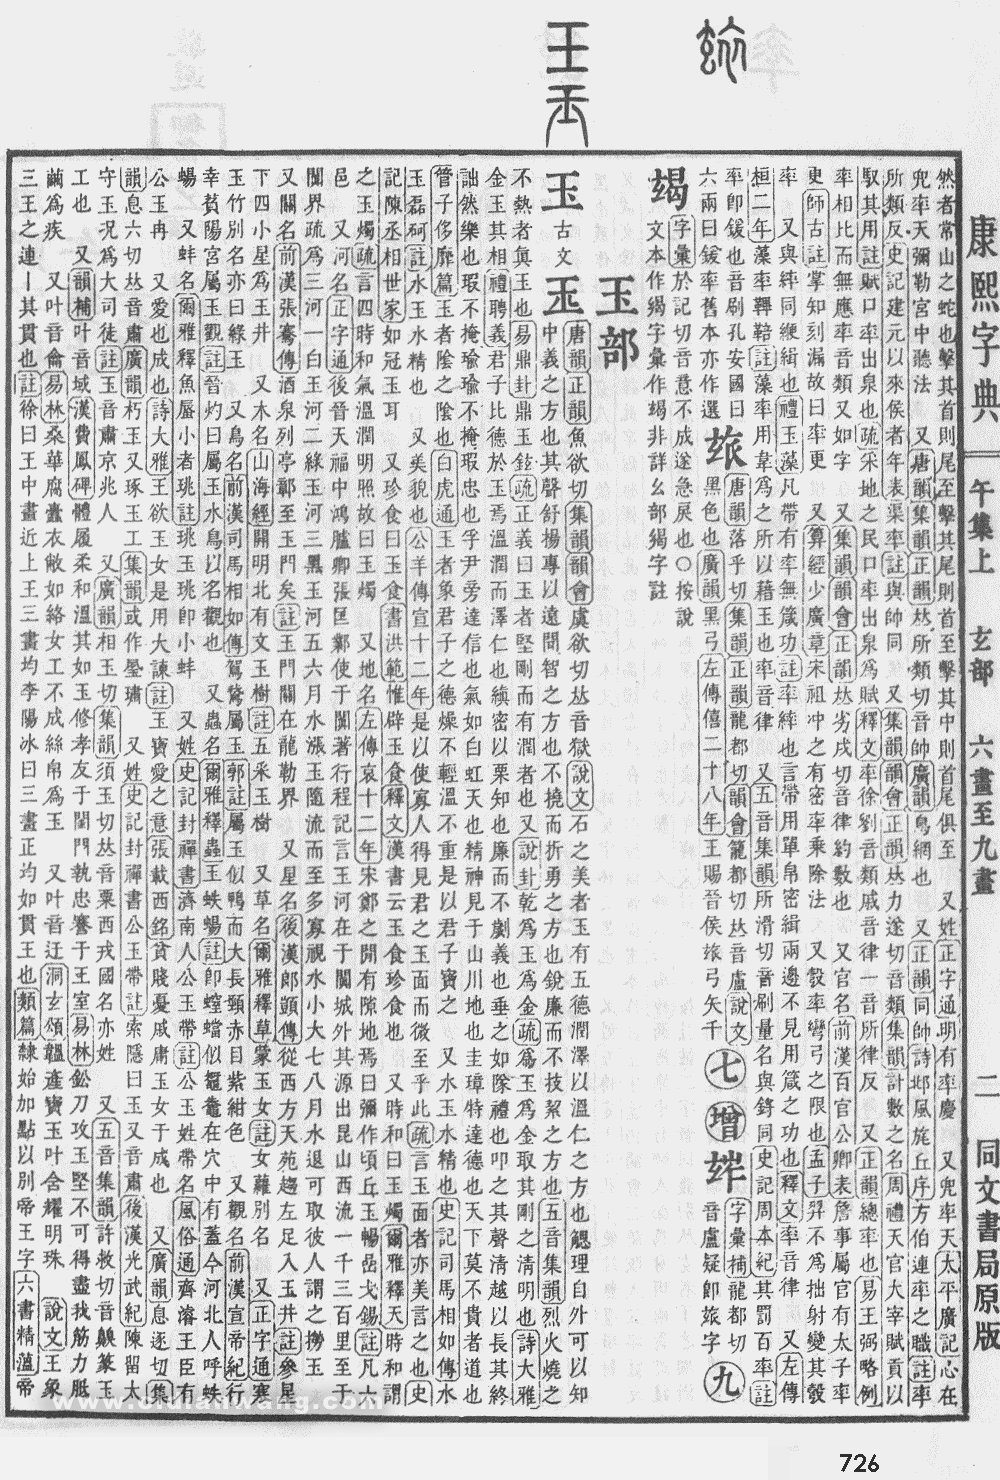 康熙字典 午集上 玄部 六畫至九畫 二一 同文書局原版
然者常山之蛇也擊其首則尾至擊其尾則首至擊其中則首尾俱至 又姓正字通明有率慶 又兜率天太平廣記心在
兜率天彌勒宮中聽法 又唐韻集韻正韻𠀤所類切音帥廣韻鳥網也 又正韻同帥詩邶風旄丘序方伯連率之職註率
所類反史記建元以來侯者年表渠率註與帥同 又集韻韻會正韻𠀤力遂切音類集韻計數之名周禮天官大宰賦貢以
馭其用註賦口率出泉也疏宋地之民口率出泉爲賦釋文率徐劉音類戚音律一音所律反 又正韻總率也易王弼略例
率相比而無應率音類又如字 又集韻韻會正韻𠀤劣戌切音律約數也 又官名前漢百官公卿表詹事屬官有太子率
更師古註掌知刻漏故曰率更 又算經少廣章宋祖冲之有密率乘除法 又彀率彎弓之限也孟子羿不爲拙射變其彀
率 又與繂同纆緝也禮玉藻凡帶有率無箴功註率繂也言帶用單帛密緝兩邊不見用箴之功也釋文率音律 又左傳
桓二年藻率鞞鞛註藻率用韋爲之所以藉玉也率音律 又五音集韻所滑切音刷量名與鋝同史記周本紀其罰百率註
率卽鍰也音刷孔安國曰
六兩曰鍰率舊本亦作選
玈
唐韻落乎切集韻正韻龍都切韻會籠都切𠀤音盧說文
黑色也廣韻黑弓左傳僖二十八年王賜晉侯玈弓矢千
七
增
字彙補龍都切
音盧疑卽玈字
九
竭
字彙於記切音意不成遂急戾也○按說
文本作竭字彙作竭非詳幺部竭字註
玉部
玉
古文
唐韻正韻魚欲切集韻韻會虞欲切𠀤音獄說文石之美者玉有五德潤澤以溫仁之方也鰓理自外可以知
中義之方也其聲舒揚專以遠聞智之方也不撓而折勇之方也銳廉而不技絜之方也五音集韻烈火燒之
不熱者眞玉也易鼎卦鼎玉鉉疏正義曰玉者堅剛而有潤者也又說卦乾爲玉爲金疏爲玉爲金取其剛之淸明也詩大雅
金玉其相禮聘義君子比德於玉焉溫潤而澤仁也縝密以栗知也廉而不劌義也垂之如隊禮也叩之其聲淸越以長其終
詘然樂也瑕不掩瑜瑜不掩瑕忠也孚尹旁達信也氣如白虹天也精神見于山川地也圭璋特達德也天下莫不貴者道也
管子侈靡篇玉者陰之陰也白虎通玉者象君子之德燥不輕溫不重是以君子寶之 又水玉水精也史記司馬相如傳水
玉磊砢註水玉水精也 又美貌也公羊傳宣十二年是以使寡人得見君之玉面而微至乎此疏言玉面者亦美言之也史
記陳丞相世家如冠玉耳 又珍食曰玉食書洪範惟辟玉食釋文漢書云玉食珍食也 又時和曰玉燭爾雅釋天時和謂
之玉燭疏言四時和氣溫潤明照故曰玉燭 又地名左傳哀十二年宋鄭之閒有隙地焉曰彌作頃丘玉暢嵒戈錫註凡六
邑 又河名正字通後晉天福中鴻臚卿張匡鄴使于闐著行程記言玉河在于闐城外其源出昆山西流一千三百里至于
闐界疏爲三河一白玉河二綠玉河三黑玉河五六月水漲玉隨流而至多寡視水小大七八月水退可取彼人謂之撈玉
又關名前漢張騫傳酒泉列亭鄣至玉門矣註玉門關在龍勒界 又星名後漢郞顗傳從西方天苑趨左足入玉井註參星
下四小星爲玉井 又木名山海經開明北有文玉樹註五采玉樹 又草名爾雅釋草蒙玉女註女蘿別名 又正字通寒
玉竹別名亦曰綠玉 又鳥名前漢司馬相如傳鴛鷟屬玉郭註屬玉似鴨而大長頸赤目紫紺色 又觀名前漢宣帝紀行
幸萯陽宮屬玉觀註晉灼曰屬玉水鳥以名觀也 又蟲名爾雅釋蟲王蛈蝪註卽螲蟷似鼅鼄在穴中有蓋今河北人呼蛈
蝪 又蚌名爾雅釋魚蜃小者珧註珧玉珧卽小蚌 又姓史記封禪書濟南人公玉帶註公玉姓帶名風俗通齊濬王臣有
公玉冉 又愛也成也詩大雅王欲玉女是用大諫註玉寶愛之意張載西銘貧賤憂戚庸玉女于成也 又廣韻息逐切集
韻息六切𠀤音肅廣韻朽玉又琢玉工集韻或作璛璹 又姓史記封禪書公玉帶註索隱曰玉又音肅後漢光武紀陳留太
守玉況爲大司徒註玉音肅京兆人 又廣韻相玉切集韻須玉切𠀤音粟西戎國名亦姓 又五音集韻許救切音齅篆玉
工也 又韻補叶音域漢費鳳碑體履柔和溫其如玉修孝友于閨門執忠謇于王室易林鈆刀攻玉堅不可得盡我筋力胝
繭爲疾 又叶音龠易林桑華腐蠹衣敝如絡女工不成絲帛爲玉 又叶音迂洞玄頌韞產寶玉叶含耀明珠 說文王象
三王之連丨其貫也註徐曰王中畫近上玉三畫均李陽冰曰三畫正均如貫玉也類篇隸始加點以別帝王字六書精溫帝
726